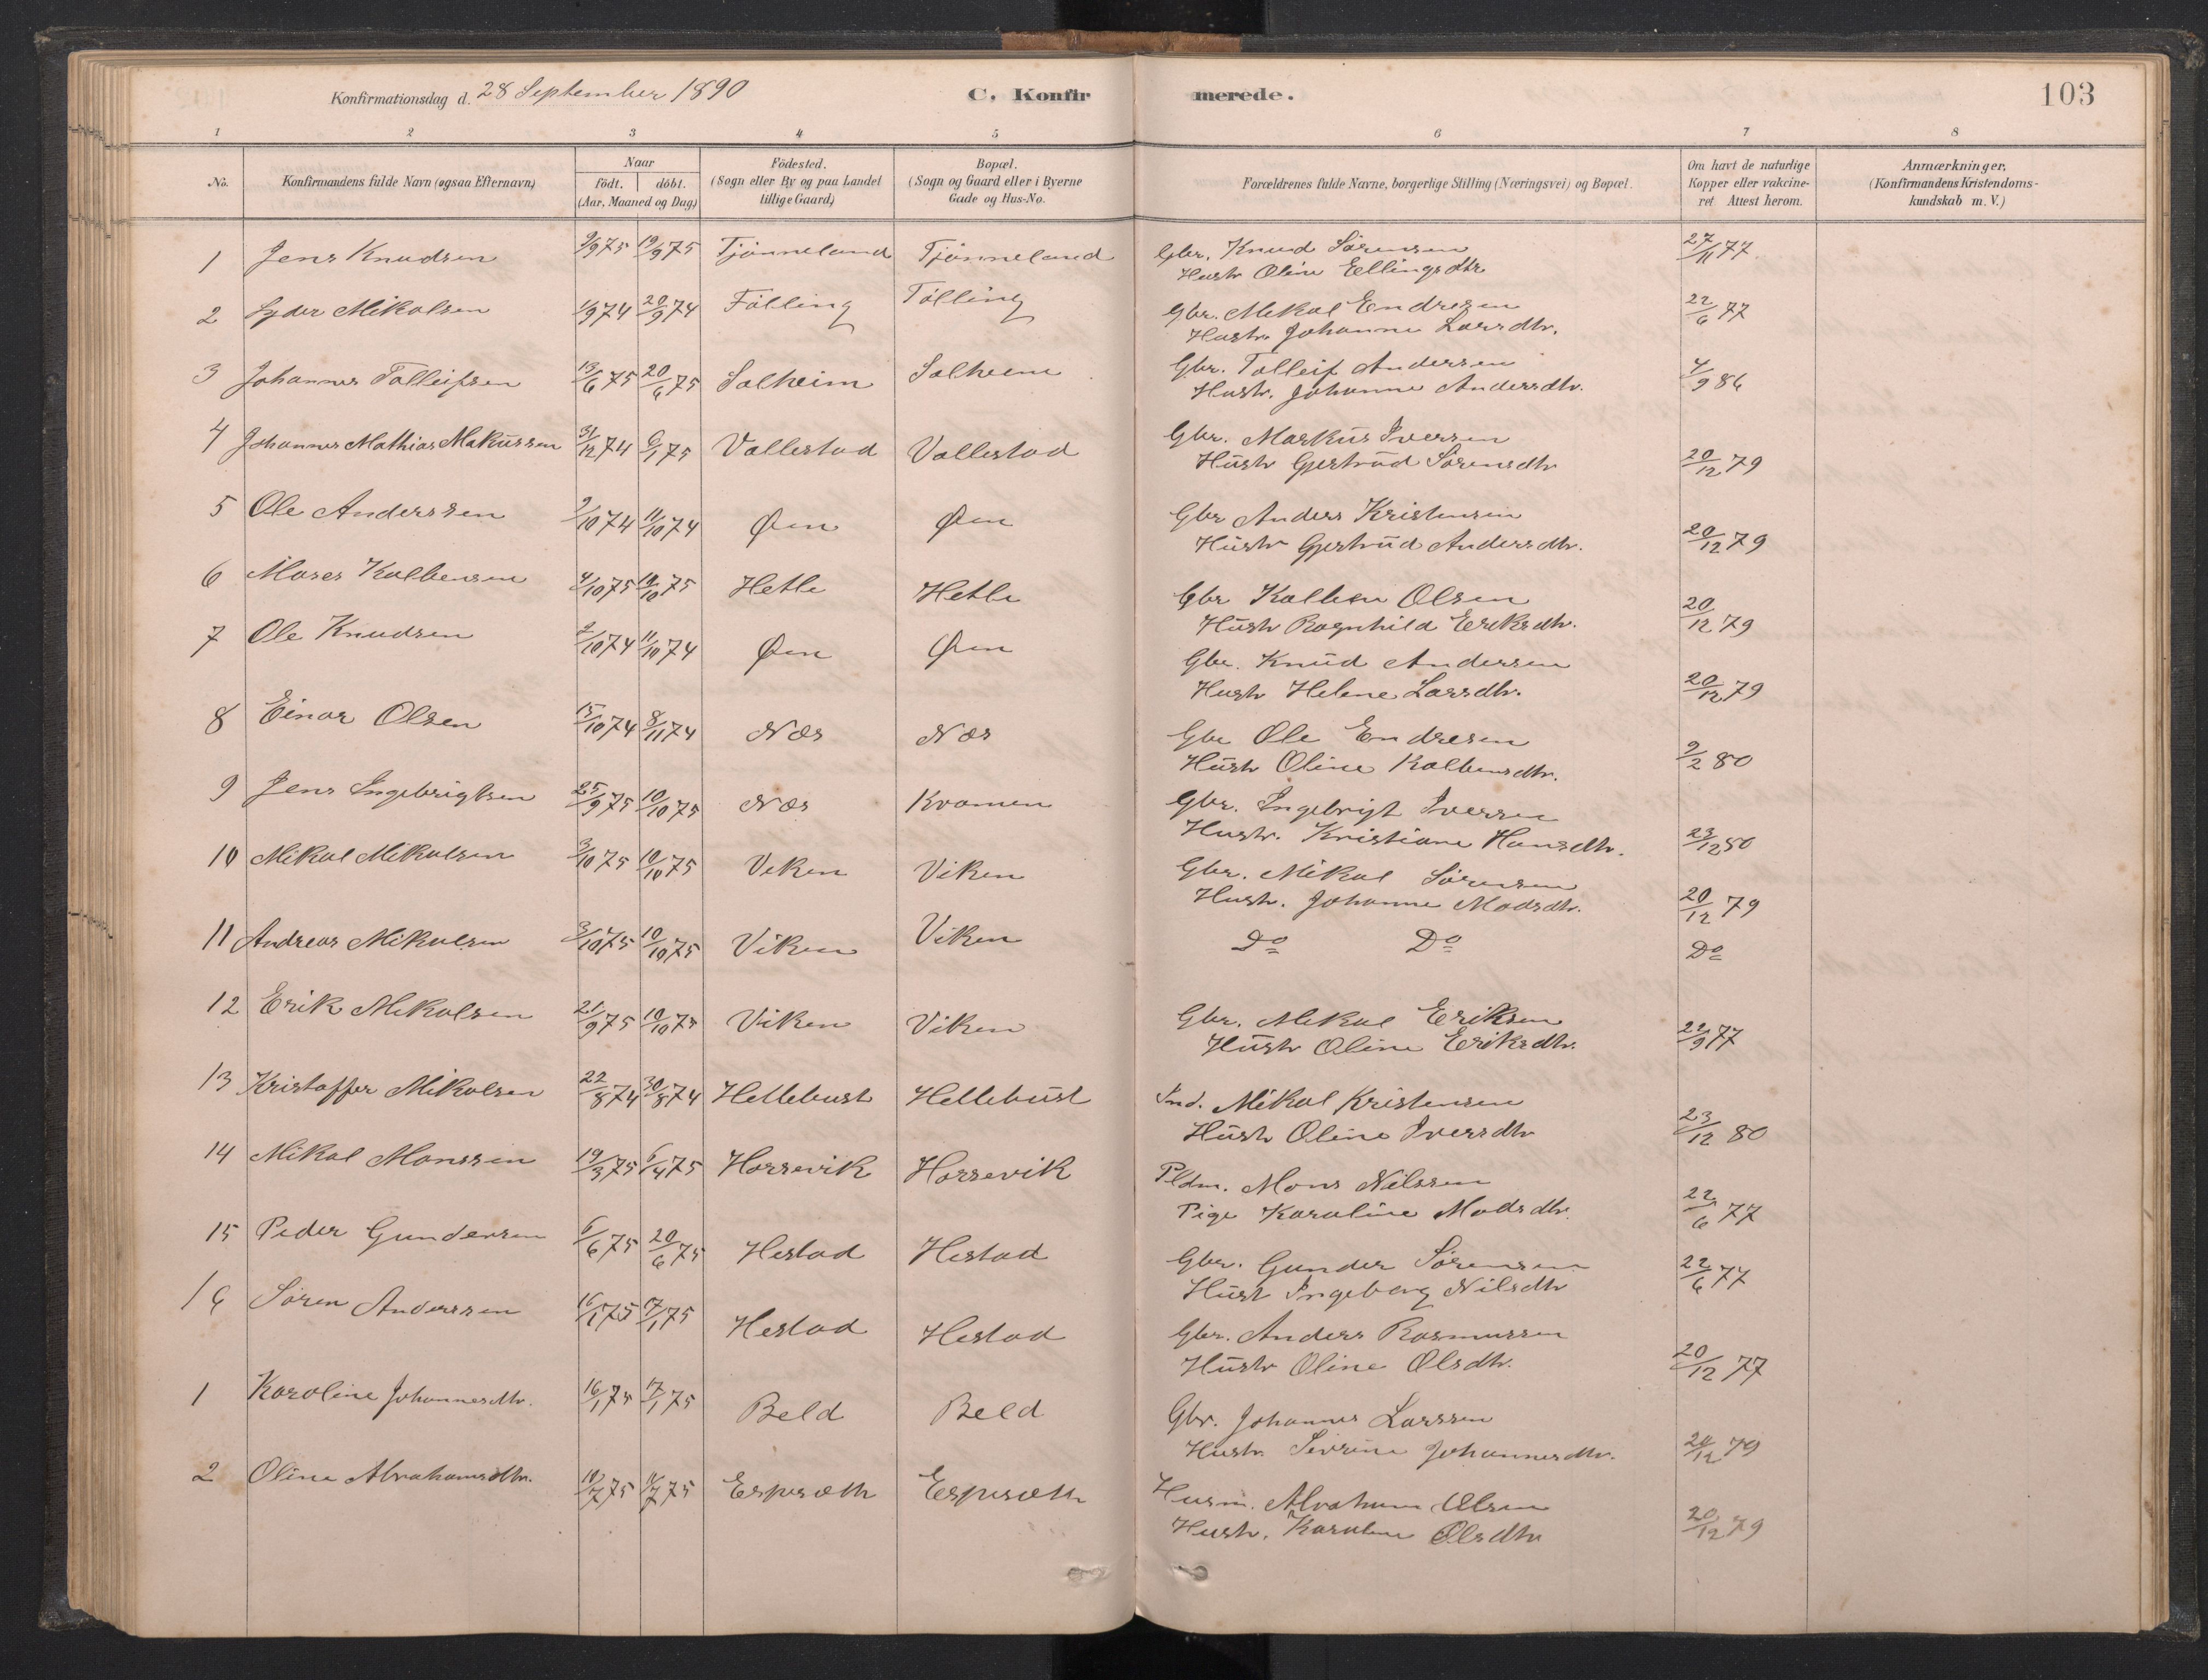 Konfirmationsdag d. 28 September 1890
C. Konfirmerede.
103
1 2 3 4 5 6 7 8
No.
Konfirmandens fulde Navn (ogsaa Efternavn)
Naar
födt. döbt.
(Aar, Maaned og Dag)
Födested.
(Sogn eller By og paa Landet
tillige Gaard)
Bopæl.
(Sogn og Gaard eller i Byerne
Gade og Hus-No.
Forældrenes fulde Navne, borgerlige Stilling (Næringsvei) og Bopæl.
Om havt de naturlige
Kopper eller vakcine-
ret Attest herom.
Anmærkninger,
(Konfirmandens Kristendoms-
kundskab m. V.)
1 Jens Knudsen 9/9 75 19/9 75 Tjønneland Tjønneland Gbr. Knud Sørensen 27/11 77
Hustr Oline Ellingsdtr
2 Lyder Mikalsen 1/9 74 20/9 74 Fölling Tölling Gbr. Mikal Endresen 22/6 77
Hustr. Johanne Larsdtr.
3 Johannes Tolleifsen 13/6 75 20/6 75 Solheim Solheim Gbr. Tolleif Andersen 4/9 86
Hustr. Johanne Andersdtr.
4 Johannes Mathias Makussen 31/12 74 6/1 75 Vallestad Vallestad Gbr. Markus Iversen
Hustr Gjertrud Sørensdtr 20/12 79
5 Ole Anderssen 2/10 74 11/10 74 Øen Øen Gbr Anders Kristensen
Hustr Gjertrud Andersdtr. 20/12 79
6 Moses Kolbensen 4/10 75 10/10 75 Hetle Hetle Gbr Kolben Olsen
Hustr Ragnhild Eriksdtr. 20/12 79
7 Ole Knudsen 2/10 74 11/10 74 Øen Øen Gbr. Knud Andersen
Hustr Helene Larsdtr. 20/12 79
8 Einar Olsen 15/10 74 8/11 74 Nes Nes Gbr Ole Endresen
Hustr Oline Kolbensdtr. 9/2 80
9 Jens Ingebrigtsen 25/9 75 10/10 75 Nes Kvamen Gbr. Ingebrigt Iversen
Hustr. Kristiane Hansdtr. 23/12 80
10 Mikal Mikalsen 3/10 75 10/10 75 Viken Viken Gbr. Mikal Sörensen
Hustr. Johanne Madsdtr. 20/12 79
11 Andreas Mikalsen 3/10 75 10/10 75 Viken Viken Do Do Do
12 Erik Mikalsen 21/9 75 10/10 75 Viken Viken Gbr. Mikal Eriksen
Hustr Oline Eriksdtr. 22/9 77
13 Kristoffer Mikalsen 22/8 74 30/8 74 Hellebust Hellebust Ind. Mikal Kristensen
Hustr Oline Iversdtr 23/12 80
14 Mikal Monssen 19/3 75 6/4 75 Horsevik Horsevik Pldm. Mons Nilssen
Pige Karoline Madsdtr. 22/6 77
15 Peder Gundersen 6/6 75 20/6 75 Hestad Hestad Gbr. Gunder Sörensen
Hustr Ingeborg Nilsdtr 22/6 77
16 Sören Anderssen 16/1 75 17/1 75 Hestad Hestad Gbr. Anders Rasmussen
Hustr Oline Olsdtr. 20/12 77
1 Karoline Johannesdtr. 16/1 75 17/1 75 Beld Beld Gbr. Johannes Larssen
Hustr. Sevrine Johannesdtr. 20/12 79
2 Oline Abrahamsdtr. 10/7 75 11/7 75 Espesæth Espesæth Husm. Abraham Olsen
Hustr. Karoline Olsdtr 20/12 79